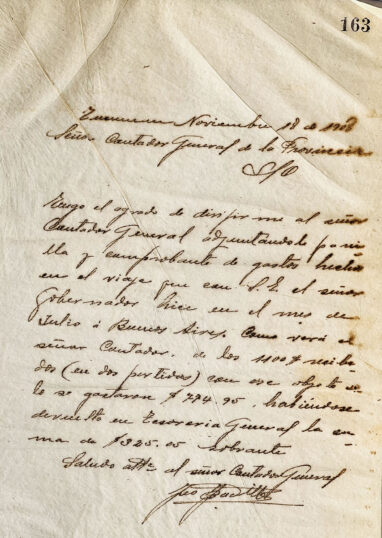 163
Tucuman Noviembre 18 de 1908
Señor Contador General de la Provincia
S/D
Tengo el agrado de dirijirme al señor
Contador General adjuntándole plani-
lla y comprobante de gastos hechos
en el viaje que con S.E. el señor
Gobernador hice en el mes de
Julio á Buenos Aires. Como verá el
señor Contador, de los 1100 $ recibi-
dos (en dos partidas) con ese objeto so-
lo se gastaron $ 774.95, habiéndose
devuelto en Tesoreria General la su-
ma de $ 325.05 sobrante
Saludo atte al señor Contador General